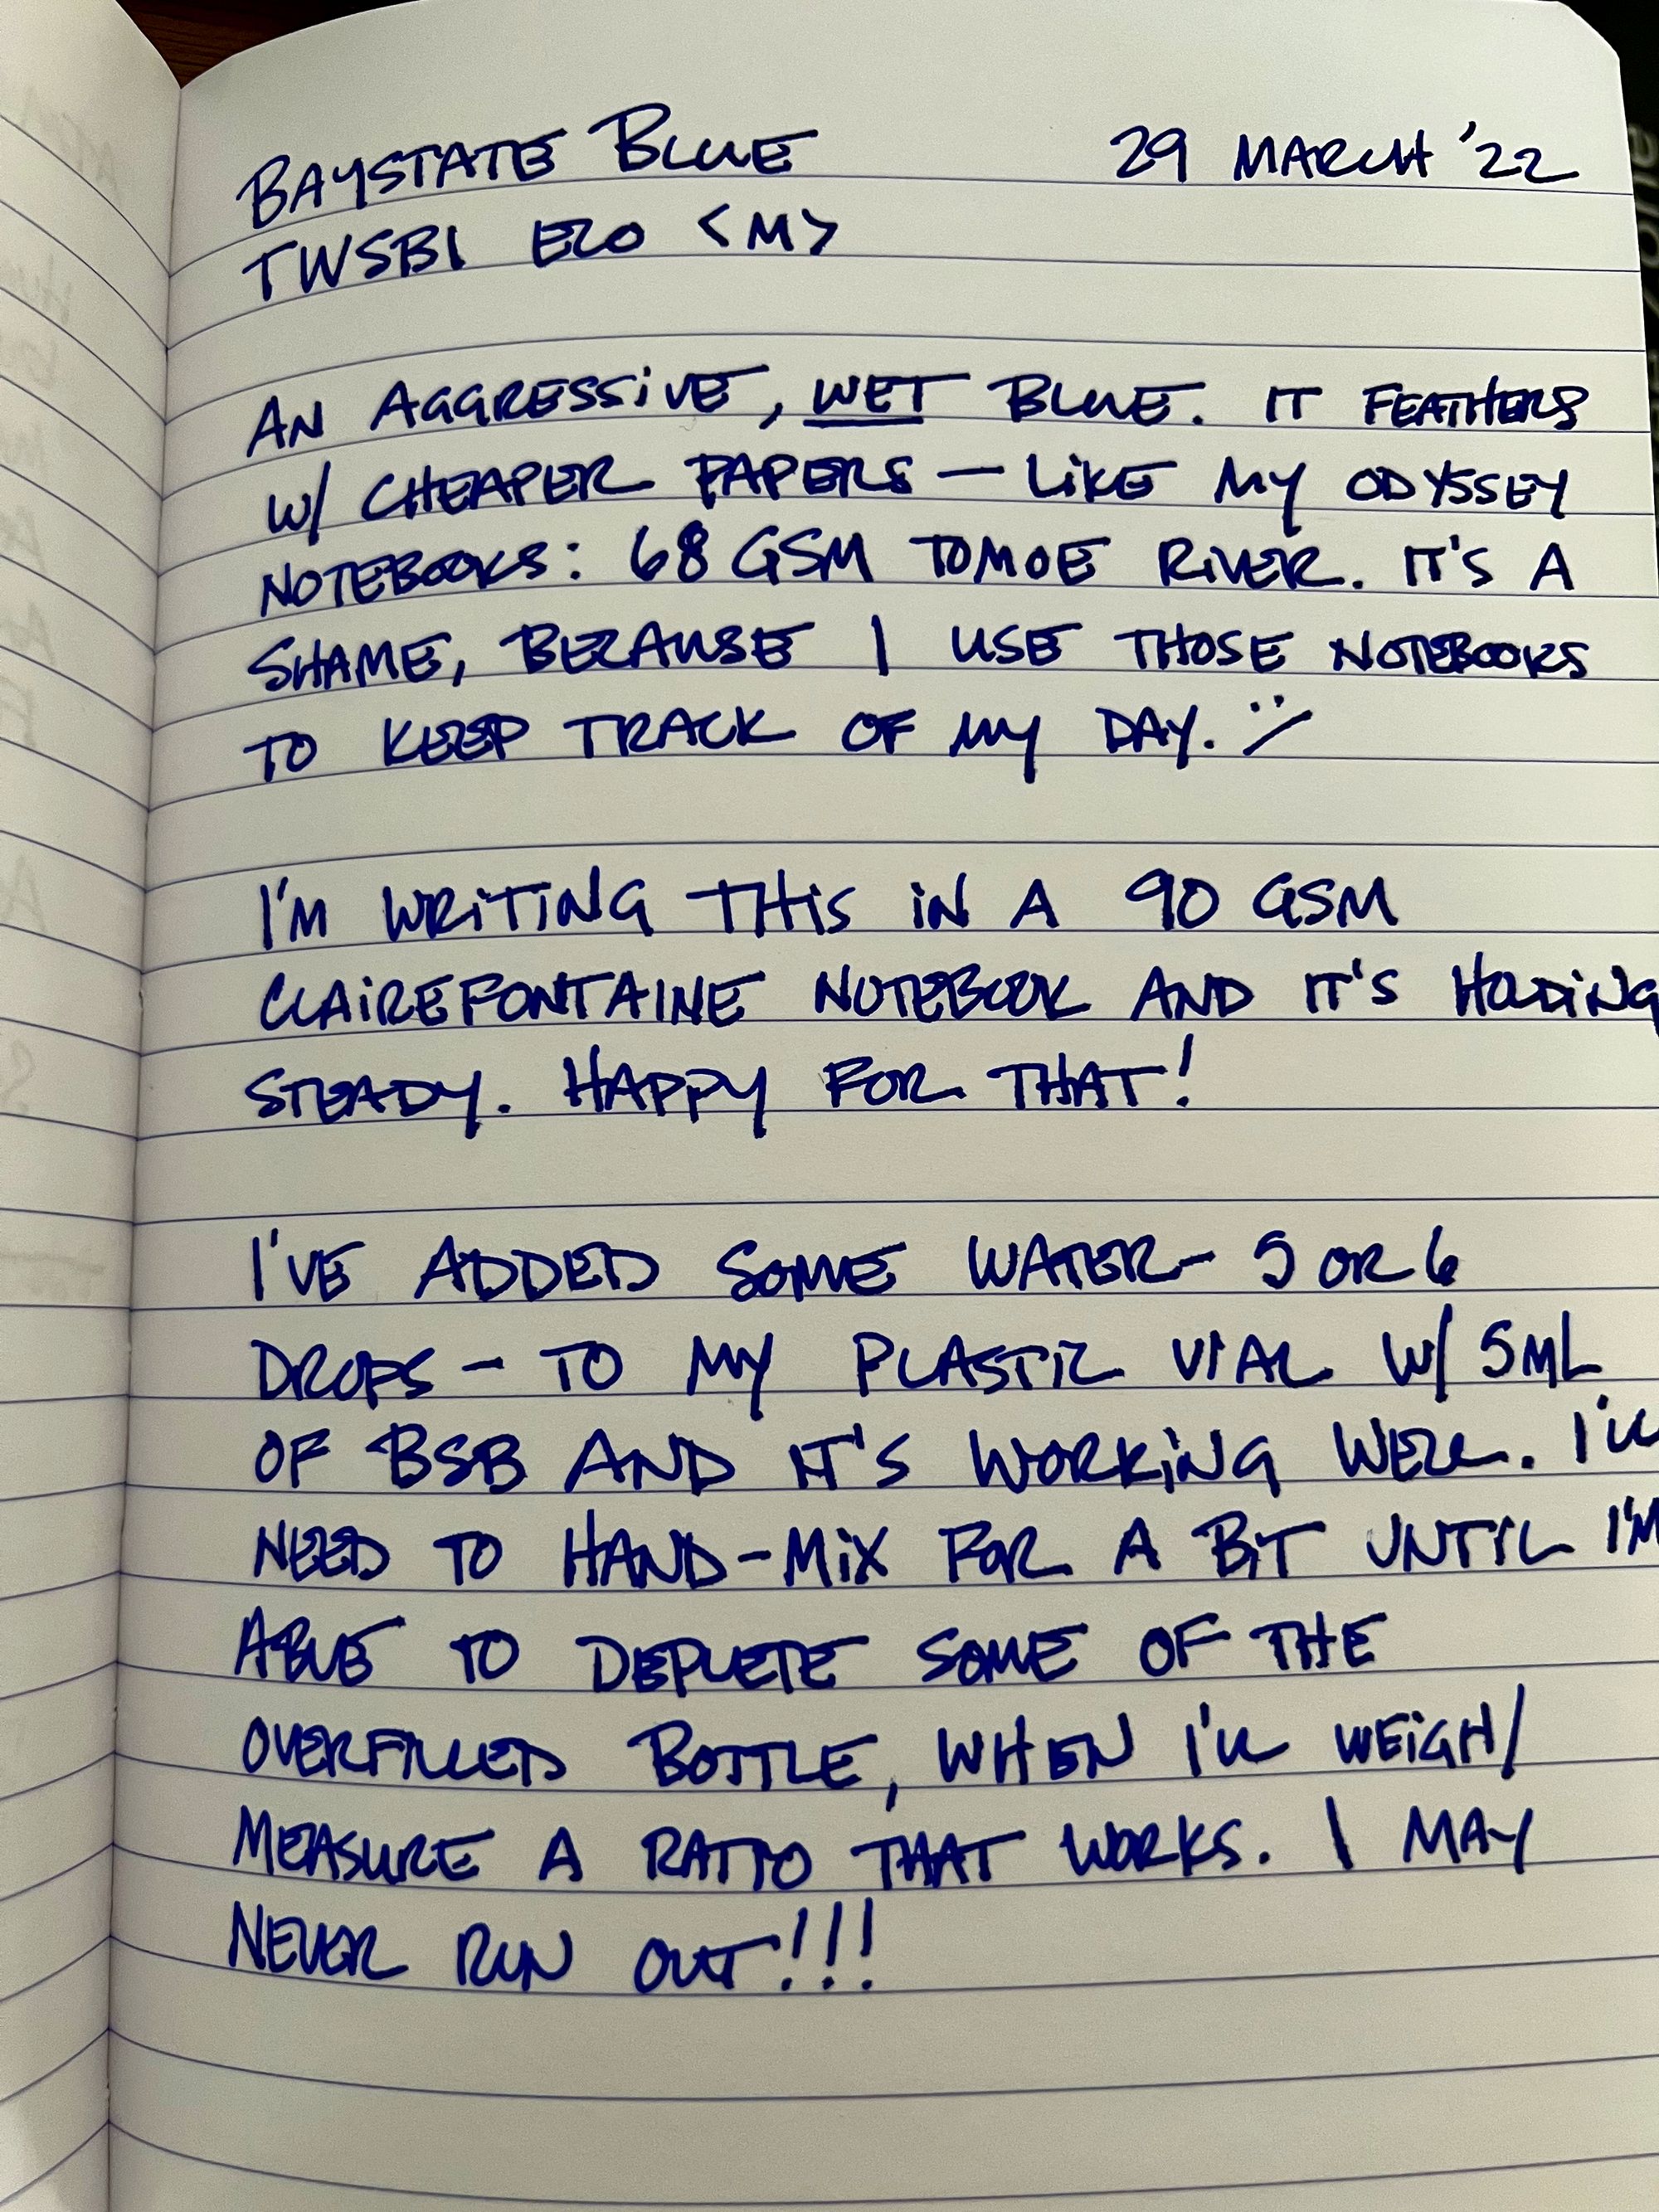 BAYSTATE BLUE 29 MARCH '22
TWSBI ECO <M>
AN AGGRESSIVE, WET BLUE. IT FEATHERS
W/ CHEAPER PAPERS — LIKE MY ODYSSEY
NOTEBOOKS: 68 GSM TOMOE RIVER. IT'S A
SHAME, BECAUSE I USE THOSE NOTEBOOKS
TO KEEP TRACK OF MY DAY. :/
I'M WRITING THIS IN A 90 GSM
CLAIREFONTAINE NOTEBOOK AND IT'S HOLDING
STEADY. HAPPY FOR THAT!
I'VE ADDED SOME WATER - 5 OR 6
DROPS - TO MY PLASTIC VIAL W/ 5ML
OF BSB AND IT'S WORKING WELL. I'LL
NEED TO HAND-MIX FOR A BIT UNTIL I'M
ABLE TO DEPLETE SOME OF THE
OVERFILLED BOTTLE, WHEN I'LL WEIGH/
MEASURE A RATIO THAT WORKS. I MAY
NEVER RUN OUT!!!